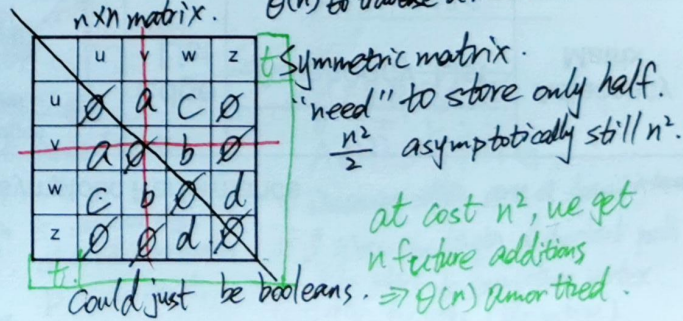 n×n matrix.
u v w z t
u ∅ a c ∅
v a ∅ b ∅
w c b ∅ d
z ∅ ∅ d ∅
t
Symmetric matrix.
"need" to store only half.
n²/2 asymptotically still n².
at cost n², we get
n future additions
⇒ θ(n) amortized.
Could just be booleans.